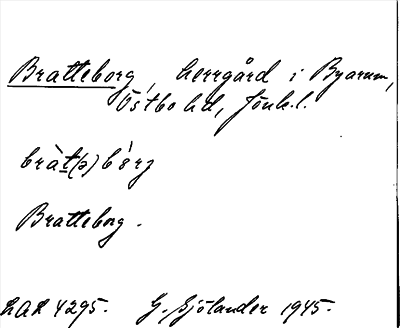 Bratteborg, herrgård i Byarum,
Östbo hd, Jönk.l.
bràt(ə)bórg
Bratteborg.
LAL 4295. G. Sjölander 1945.